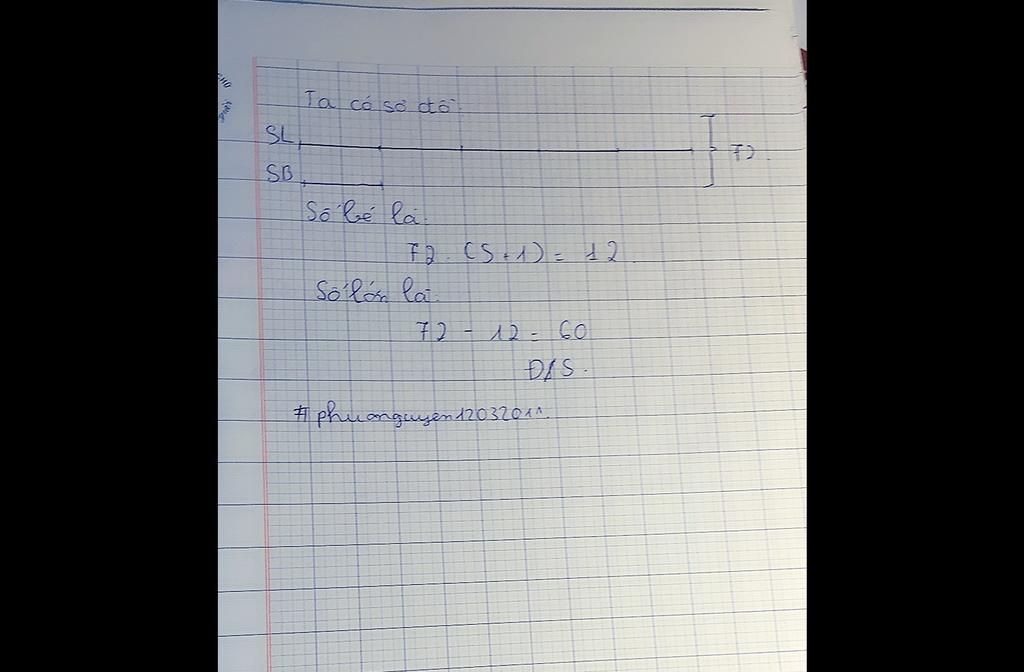 Ta có sơ đồ:
SL
72.
SB
Số bé là:
72 : (5 + 1) = 12
Số lớn là:
72 - 12 = 60
Đ/S.
#phuonguyen12032011.